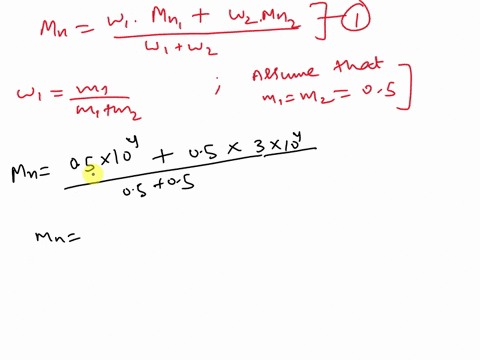 Mn = w1 . Mn1 + w2 . Mn2 / w1 + w2 ] — ①
w1 = m1 / m1 + m2 ; Assume that m1 = m2 = 0.5 ]
Mn = 0.5 × 10^4 + 0.5 × 3 × 10^4 / 0.5 + 0.5
Mn =